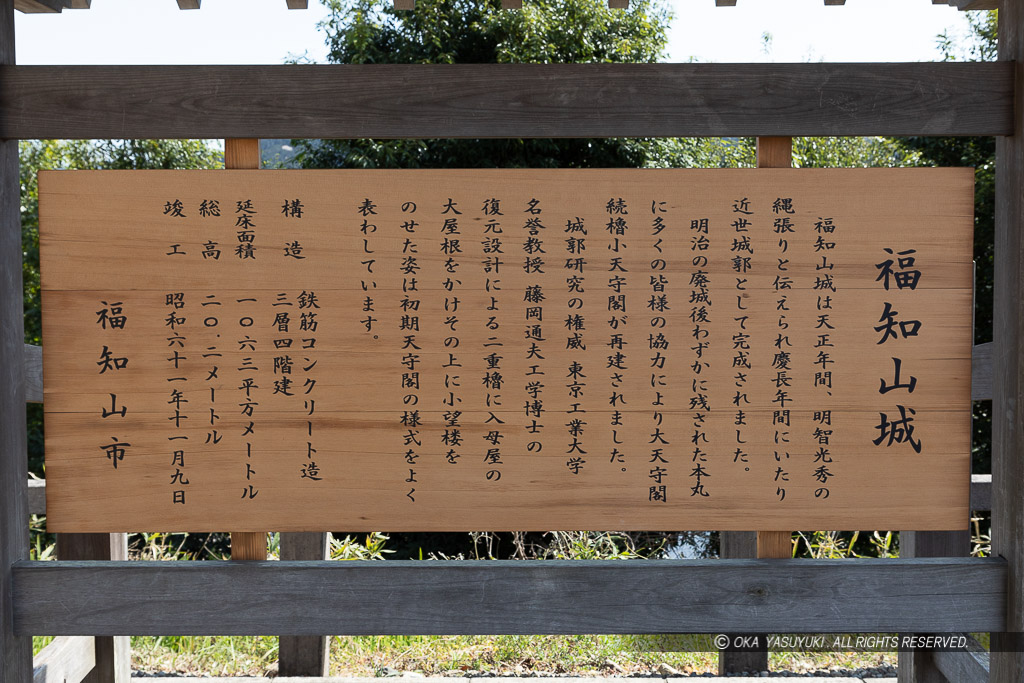 福知山城
福知山城は天正年間、明智光秀の
縄張りと伝えられ慶長年間にいたり
近世城郭として完成されました。
明治の廃城後わずかに残された本丸
に多くの皆様の協力により大天守閣
続櫓小天守閣が再建されました。
城郭研究の権威 東京工業大学
名誉教授 藤岡通夫工学博士の
復元設計による二重櫓に入母屋の
大屋根をかけその上に小望楼を
のせた姿は初期天守閣の様式をよく
表わしています。
構造 鉄筋コンクリート造
三層四階建
延床面積 一〇六三平方メートル
総高 二〇.二メートル
竣工 昭和六十一年十一月九日
福知山市
© OKA YASUYUKI. ALL RIGHTS RESERVED.